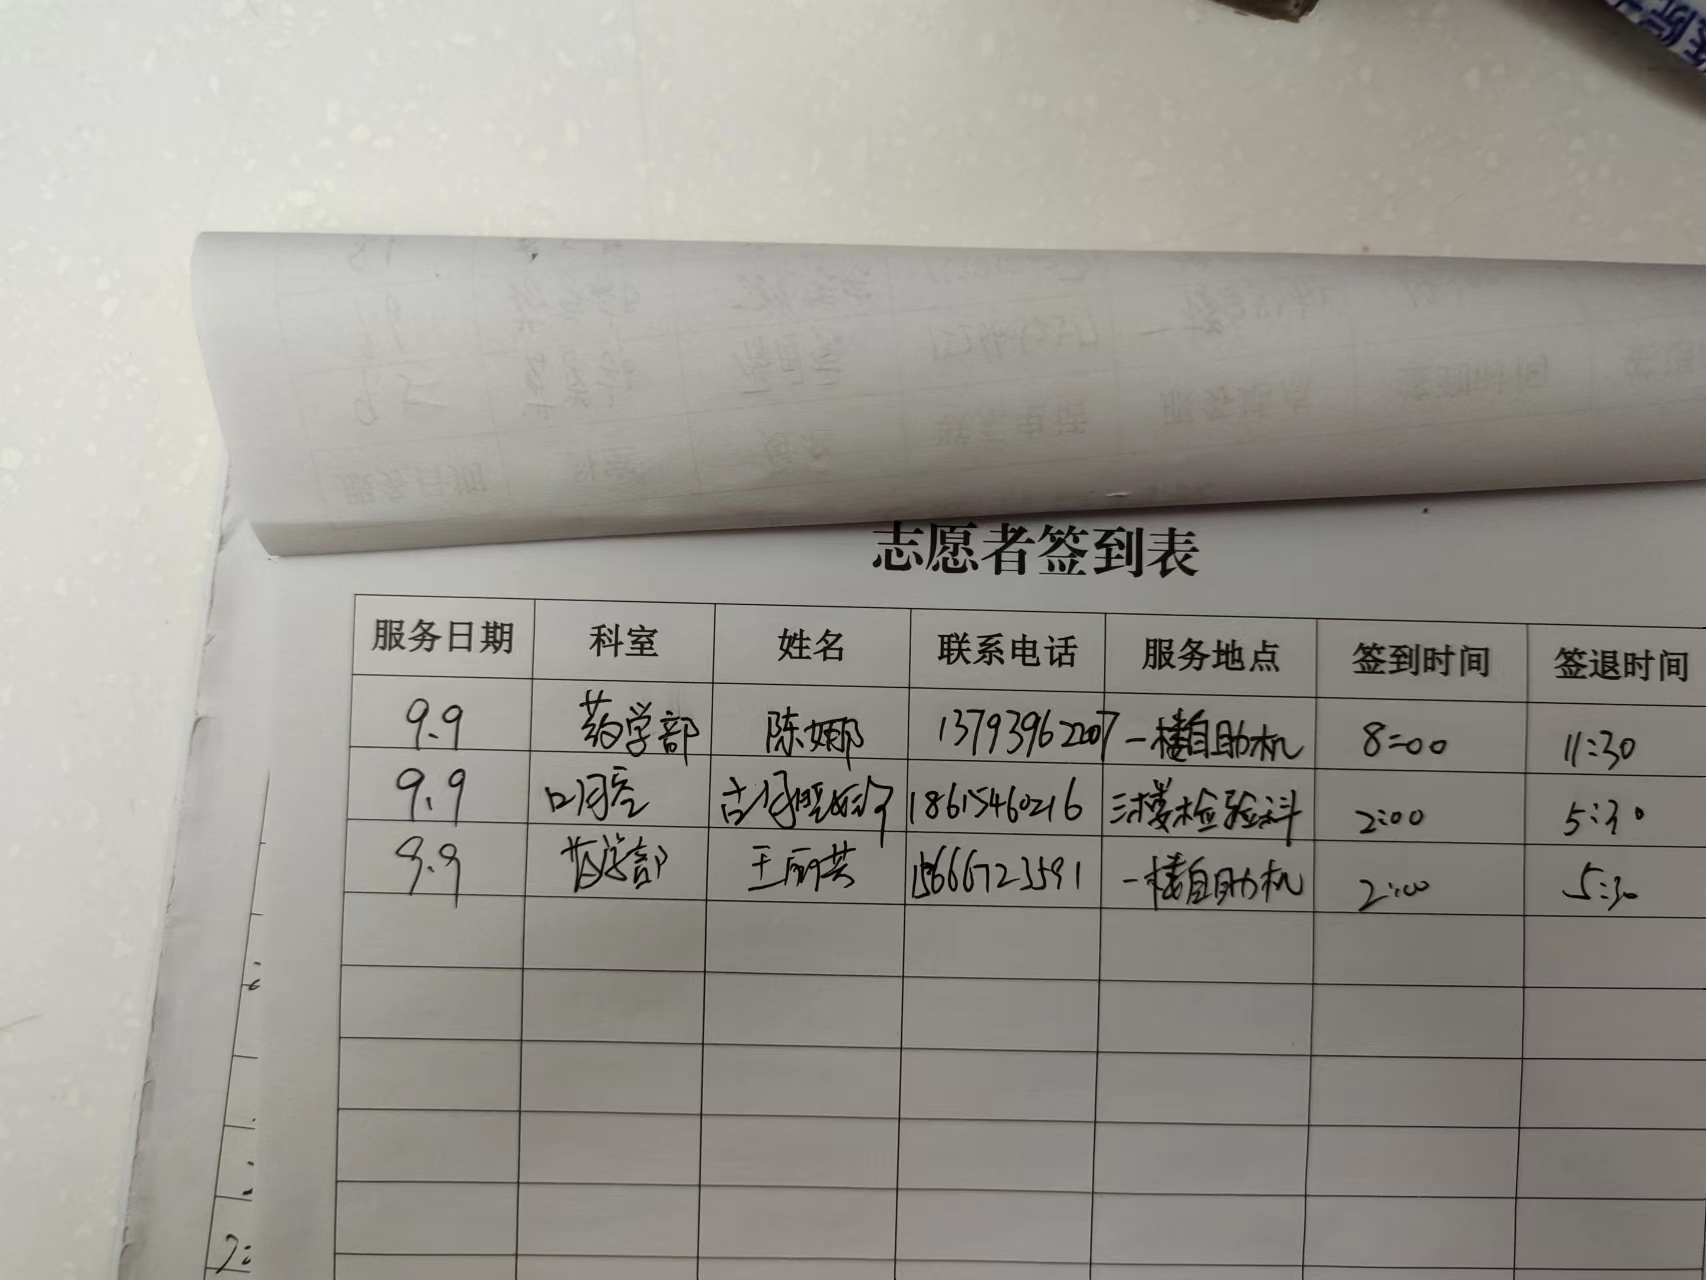 志愿者签到表
服务日期 科室 姓名 联系电话 服务地点 签到时间 签退时间
9.9 药学部 陈娜 13793962207 一楼自助机 8:00 11:30
9.9 口腔 18615460216 三楼检验科 2:00 5:30
9.9 药学部 王丽英 15666723591 一楼自助机 2:00 5:30